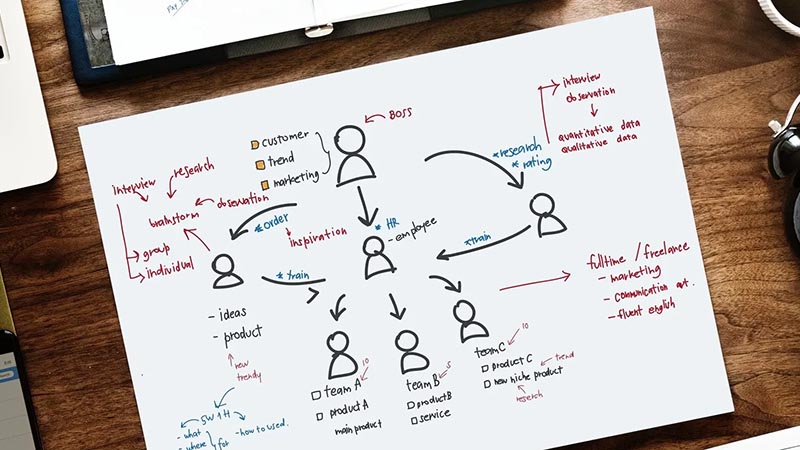 BOSS
customer
trend
marketing
interview
observation
quantitative data
qualitative data
*research
*rating
interview
research
observation
brainstorm
group
individual
*order
inspiration
* HR
- employee
*train
* train
- ideas
- product
new
trendy
fulltime / freelance
- marketing
- communication art.
- fluent english
team A
10
product A
main product
team B
5
product B
service
team C
10
product C
trend
new niche product
research
5W1H
- what
- where
for
- how to used.